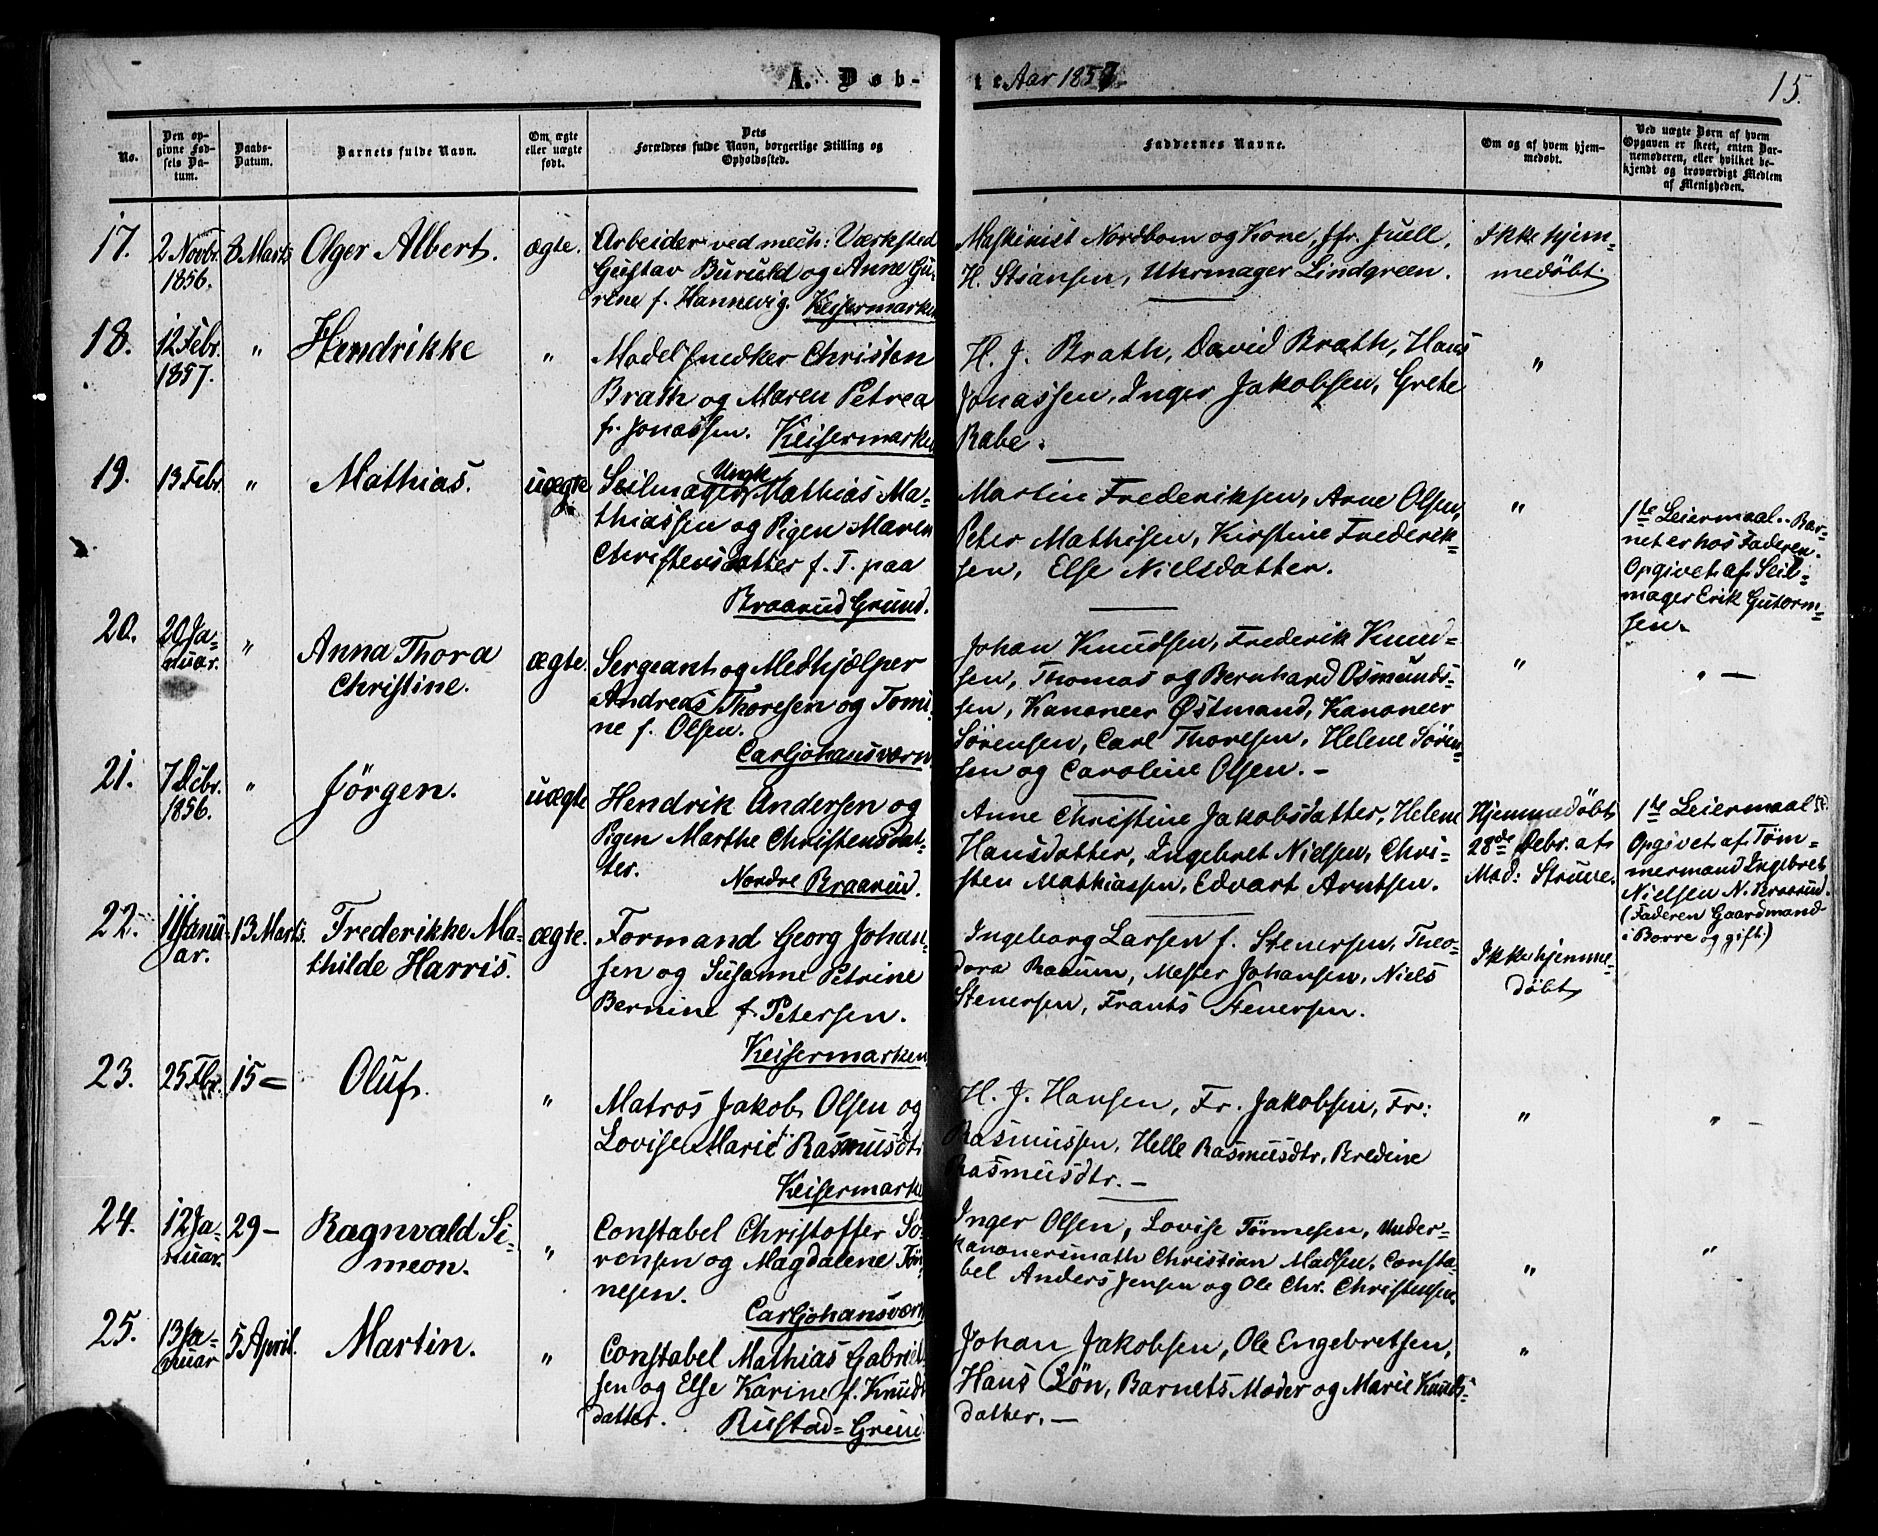 A. Døb-
te. Aar 1857.
15.
No.
Den op-
givne Fød-
sels Da-
tum.
Daabs-
Datum.
Barnets fulde Navn.
Om ægte
eller uægte
født.
Dets
Forældres fulde Navn, borgerlige Stilling og
Opholdssted.
Faddernes Navne.
Om og af hvem hjem-
medøbt.
Ved uægte Børn af hvem
Opgaven er skeet, enten Bar-
nemoderen, eller hvilket be-
kjendt og troværdigt Medlem
af Menigheden.
17.
2 Novbr.
1856.
8 Marts
Olger Albert.
ægte.
Arbeider ved mech: Værksted
Gustav Buruld og Anne Gu-
rine f. Hannevig. Keisermarken
Maskinist Nordbom og Kone, Jfr. Juell,
H. Stiansen, Uhrmager Lindgreen.
Ikke hjem-
medøbt.
18.
12 Febr.
1857.
"
Hendrikke
"
Modelsnedker Christen
Brath og Maren Petrea
f. Jonassen. Keisermarken
H. J. Brath, David Brath, Hans
Jonassen, Inger Jakobsen, Grete
Rabe.
"
19.
13 Febr.
"
Mathias.
uægte
Ungk.
Seilmager Mathias Ma-
thiassen og Pigen Maren
Christensdatter f. T. paa
Braarud Grund.
Martin Frederiksen, Arne Olsen,
Peter Mathisen, Kirstine Frederik-
sen, Else Nielsdatter.
"
1te Leiermaal. Bar-
net er hos Faderen.
Opgivet af Seil-
mager Erik Gutorm-
sen.
20.
20 Ja-
nuar.
"
Anna Thora
Christine.
ægte.
Sergeant og Medhjælper
Andreas Thoresen og Tomi-
ne f. Olsen.
Carljohansværn
Johan Knudsen, Frederik Knud-
sen, Thomas og Bernhard Osmunds-
sen, Kanoneer Østmand, Kanoneer
Sørensen, Carl Thoresen, Helene Søren-
sen og Caroline Olsen. -
"
" -
21.
7 Debr.
1856.
"
Jørgen.
uægte
Hendrik Andersen og
Pigen Marthe Christensdat-
ter.
Nordre Braarud.
Anne Christine Jakobsdatter, Helene
Hansdatter, Ingebret Nielsen, Chri-
sten Mathiassen, Edvart Arntsen.
Hjemmedøbt
28de Debr. af
Mad: Struve.
1te Leiermaal
Opgivet af Tøm-
mermand Ingebret
Nielsen N. Braarud.
(Faderen Gaardmand
i Borre og gift.)
22.
11 Janu-
ar.
13 Marts.
Frederikke Ma-
thilde Harris.
ægte.
Formand Georg Johan-
sen og Susanne Petrine
Bernine f. Petersen.
Keisermarken
Ingeborg Larsen f. Stenersen, Theo-
dora Raaum, Mester Johansen, Niels
Stenersen, Frants Stenersen.
Ikke hjemme-
døbt
23.
25 Fbr.
15 -
Oluf.
"
Matros Jakob Olsen og
Lovise Marie Rasmusdtr.
Keisermarken
H. J. Hansen, Fr. Jakobsen, Fr:
Rasmussen, Helle Rasmusdtr, Bredine
Rasmusdtr. -
"
" -
24.
12 Ja-
nuar.
29 -
Ragnvald Si-
meon.
"
Constabel Christoffer Sø-
rensen og Magdalene Tøn-
nesen.
Carljohansværn
Inger Olsen, Lovise Tønnesen, Under-
kanonersmath Christian Madsen, Consta-
bel Anders Jensen og Ole Chr. Christensen.
"
"
25.
13 Ja-
nuar
5 April.
Martin.
"
Constabel Mathias Gabriel-
sen og Else Karine f. Knuds-
datter.
Rustad-Grund
Johan Jakobsen, Ole Engebretsen,
Hans Løn, Barnets Moder og Marie Knuds-
datter. -
"